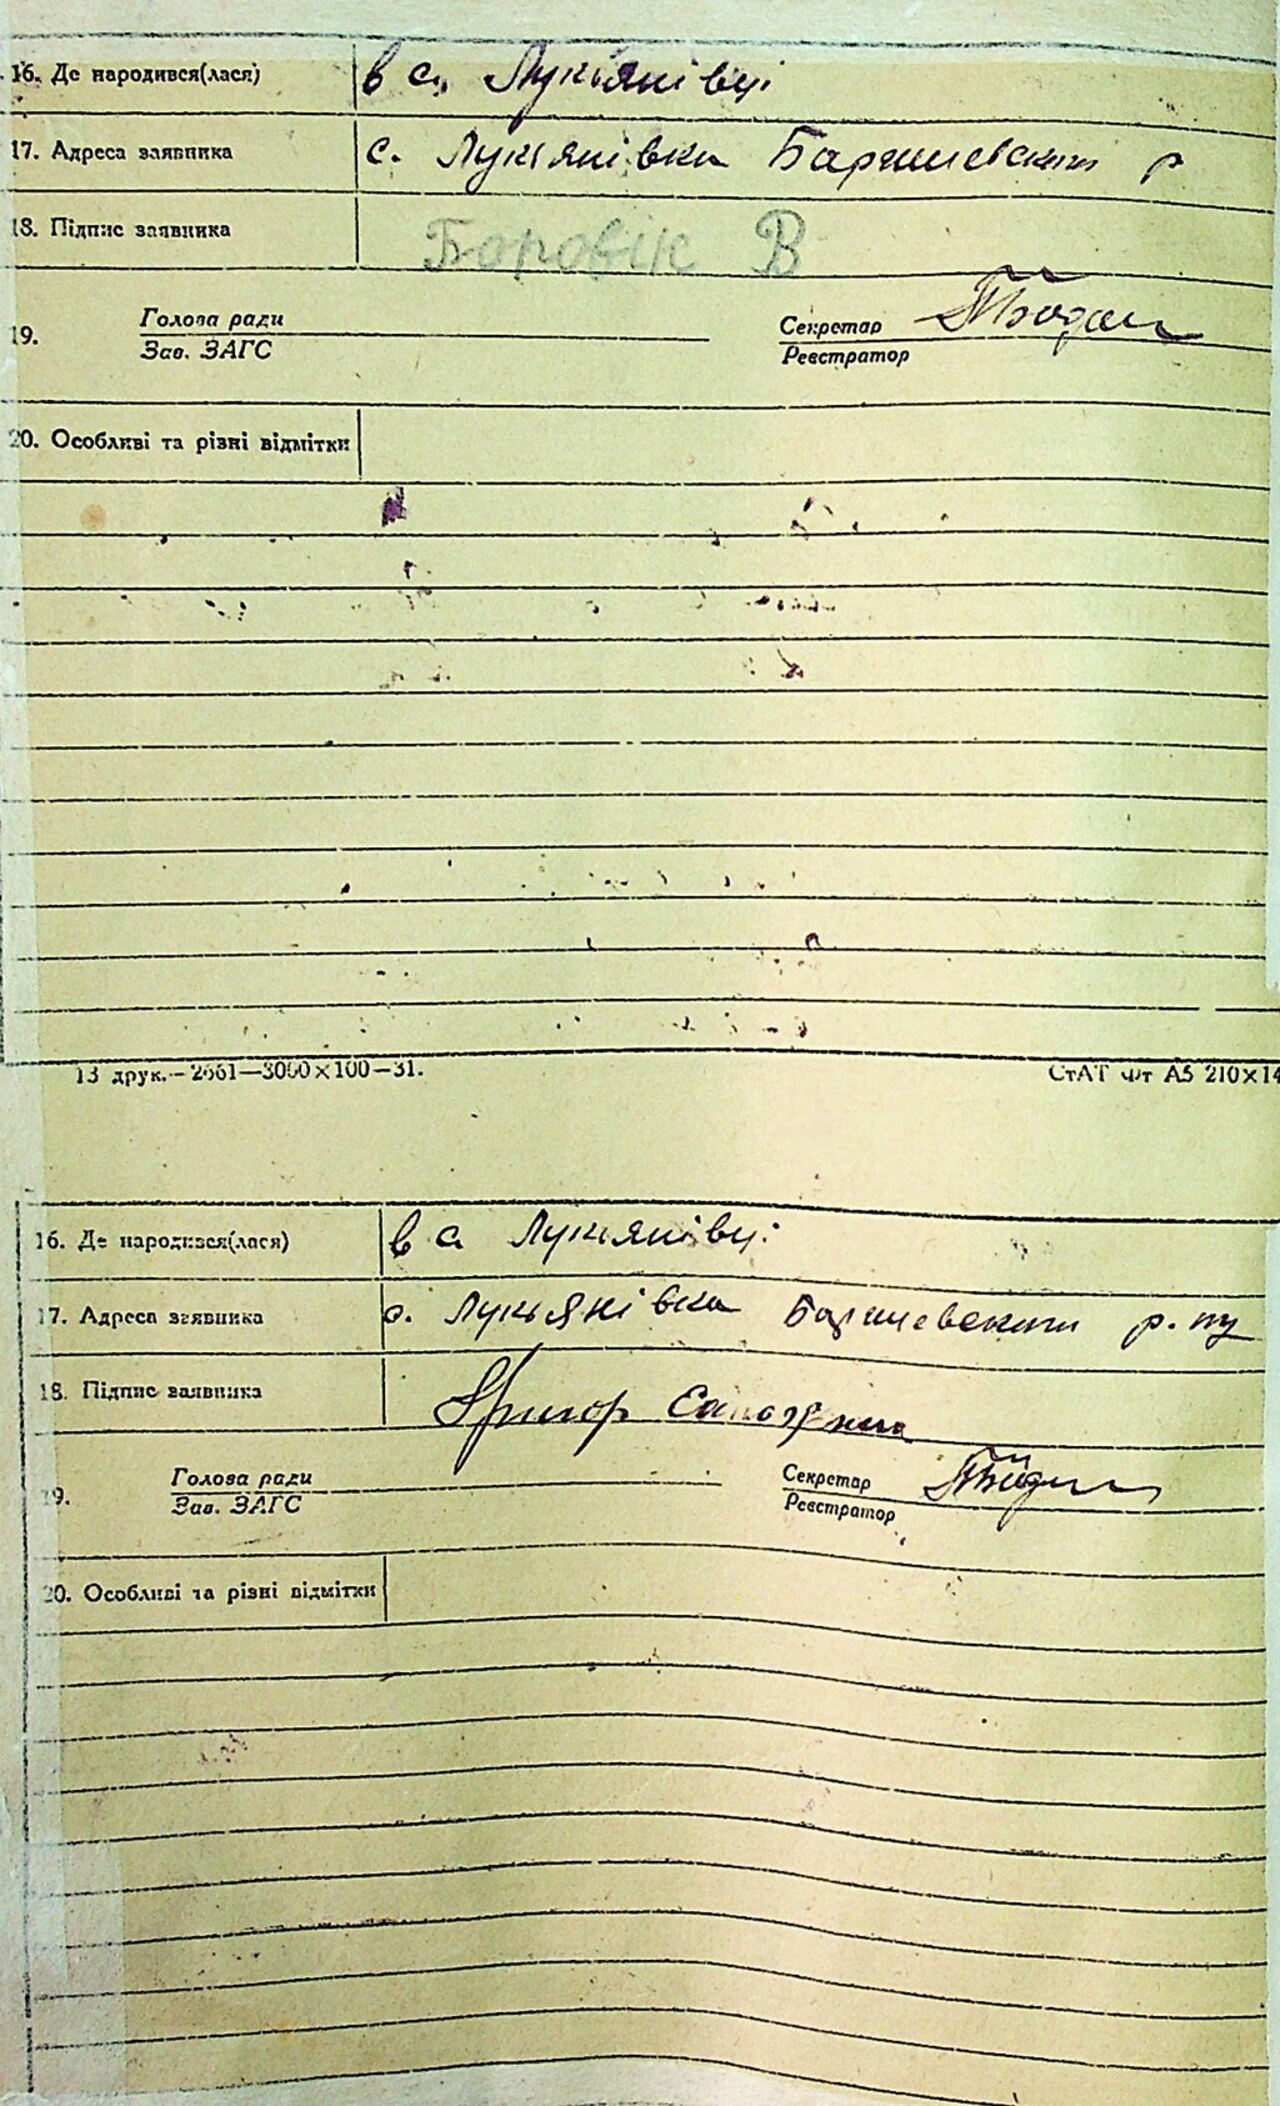 16. Де народився(лася) в с. Лукіянівці
17. Адреса заявника с. Лукіянівка Баришевський р
18. Підпис заявника Боровік В
19. Голова ради
Зав. ЗАГС
Секретар
Реєстратор
20. Особливі та різні відмітки
13 друк.-2661—3000×100—31.
СтАТ Фт А5 210×14
16. Де народився(лася) в с Лукіянівці
17. Адреса заявника с. Лукьянівка Баришевський р. ну
18. Підпис заявника
19. Голова ради
Зав. ЗАГС
Секретар
Реєстратор
20. Особливі та різні відмітки